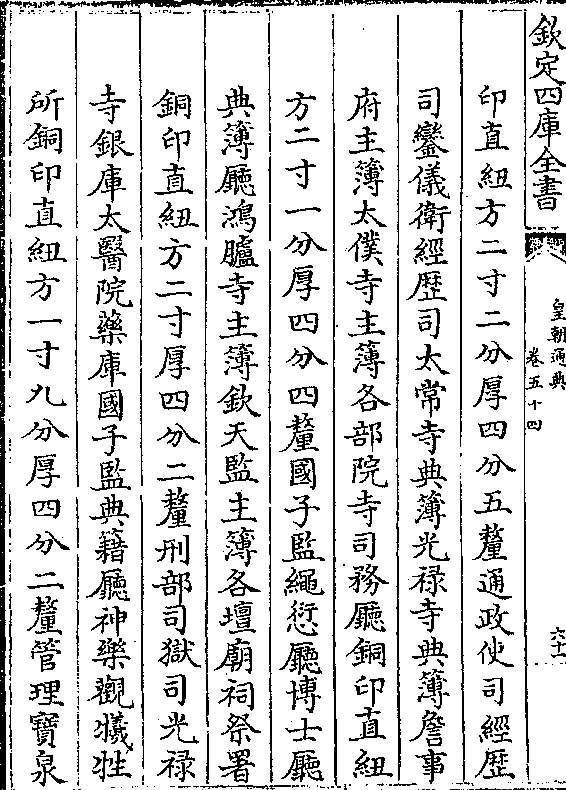 欽定四庫全書
皇朝通典
卷五十四
六十一
印直紐方二寸二分厚四分五釐通政使司經歷
司鑾儀衛經歷司太常寺典簿光禄寺典簿詹事
府主簿太僕寺主簿各部院寺司務廳銅印直紐
方二寸一分厚四分四釐國子監繩愆廳博士廳
典簿廳鴻臚寺主簿欽天監主簿各壇廟祠祭署
銅印直紐方二寸厚四分二釐刑部司獄司光禄
寺銀庫太醫院藥庫國子監典籍廳神樂觀犧牲
所銅印直紐方一寸九分厚四分二釐管理寶泉